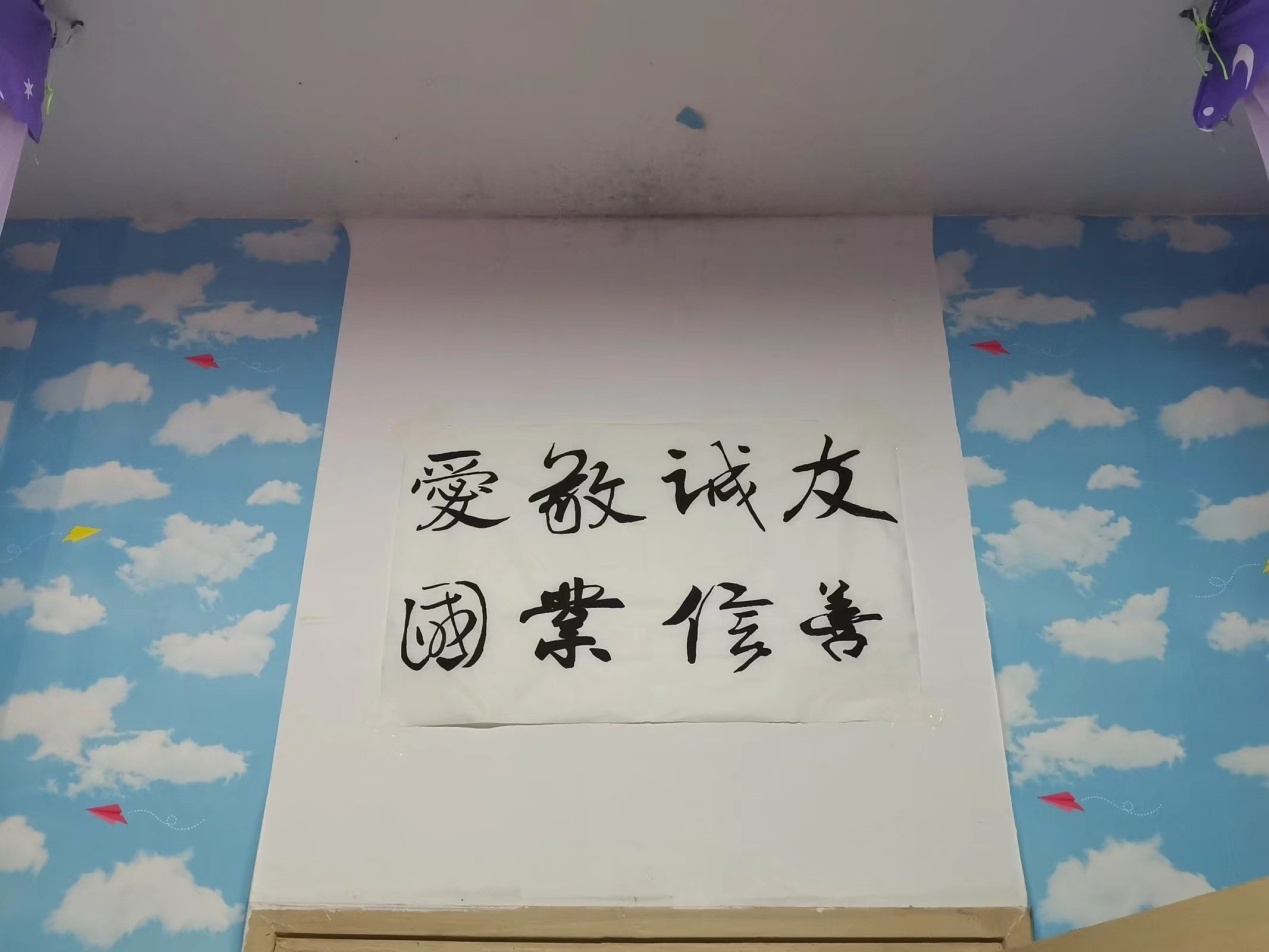 愛國
敬業
誠信
友善